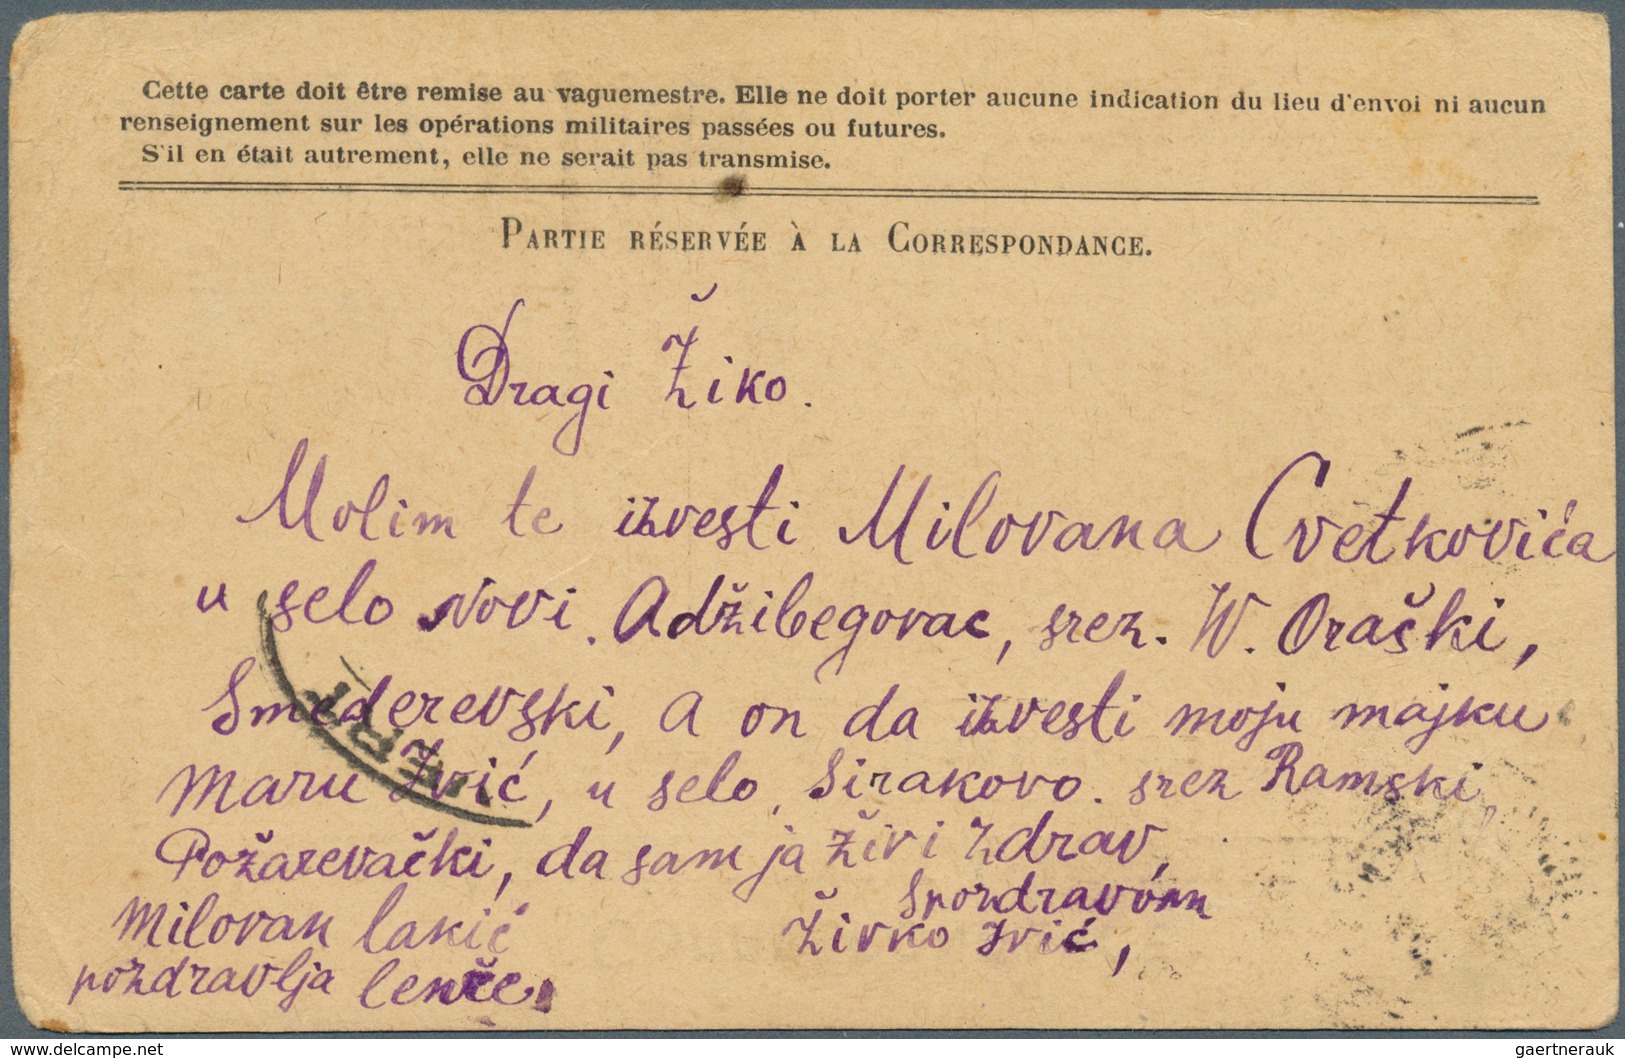 Cette carte doit être remise au vaguemestre. Elle ne doit porter aucune indication du lieu d'envoi ni aucun
renseignement sur les opérations militaires passées ou futures.
S'il en était autrement, elle ne serait pas transmise.
PARTIE RÉSERVÉE À LA CORRESPONDANCE.
Dragi Žiko.
Molim te izvesti Milovana Cvetkovića
u selo Novi. Adžibegovac, srez. W. Oraški,
Smederevski, a on da izvesti moju majku
Maru Ivić, u selo, Sirakovo. srez Ramski,
Požarevački, da sam ja živ i zdrav,
S pozdravom
Milovan Lakić Živko Ivić,
pozdravlja
www.delcampe.net
gaertnerauk